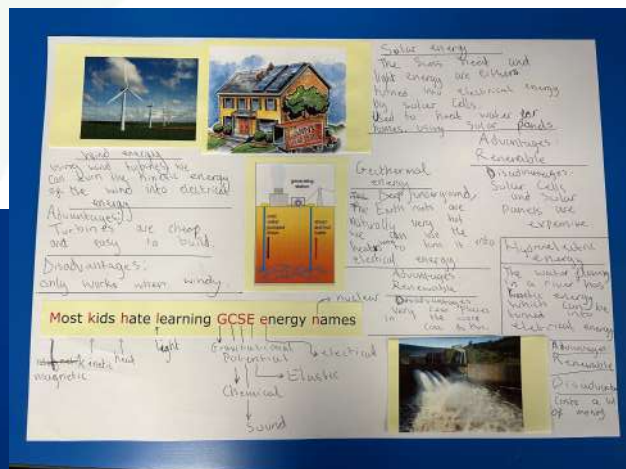 Solar energy
The Suns heat and
light energy are either
turned into electrical energy
by solar cells.
Used to heat water for
homes using solar panels
Advantages:
Renewable
Disadvantages:
Solar Cells
and Solar
panels are
expensive.
Wind energy
Using wind turbines we
can turn the kinetic energy
of the wind into electrical
energy
Advantages:
Turbines are cheap
and easy to build.
Disadvantages:
only works when windy.
generating
station
Geothermal
energy
Deep underground,
the Earth
naturally very hot
we can use the
heat to turn it into
electrical energy
Advantages
Renewable
Disadvantages
Very few places
in the world
can do this.
energy
The water flowing
in a river has
kinetic energy
which can be
turned into
electrical energy
Advantage
Renewable
Disadvantage
Costs a lot
of money
Most kids hate learning GCSE energy names
nuclear
magnetic
kinetic
heat
light
Gravitational
Potential
Chemical
Sound
Elastic
electrical